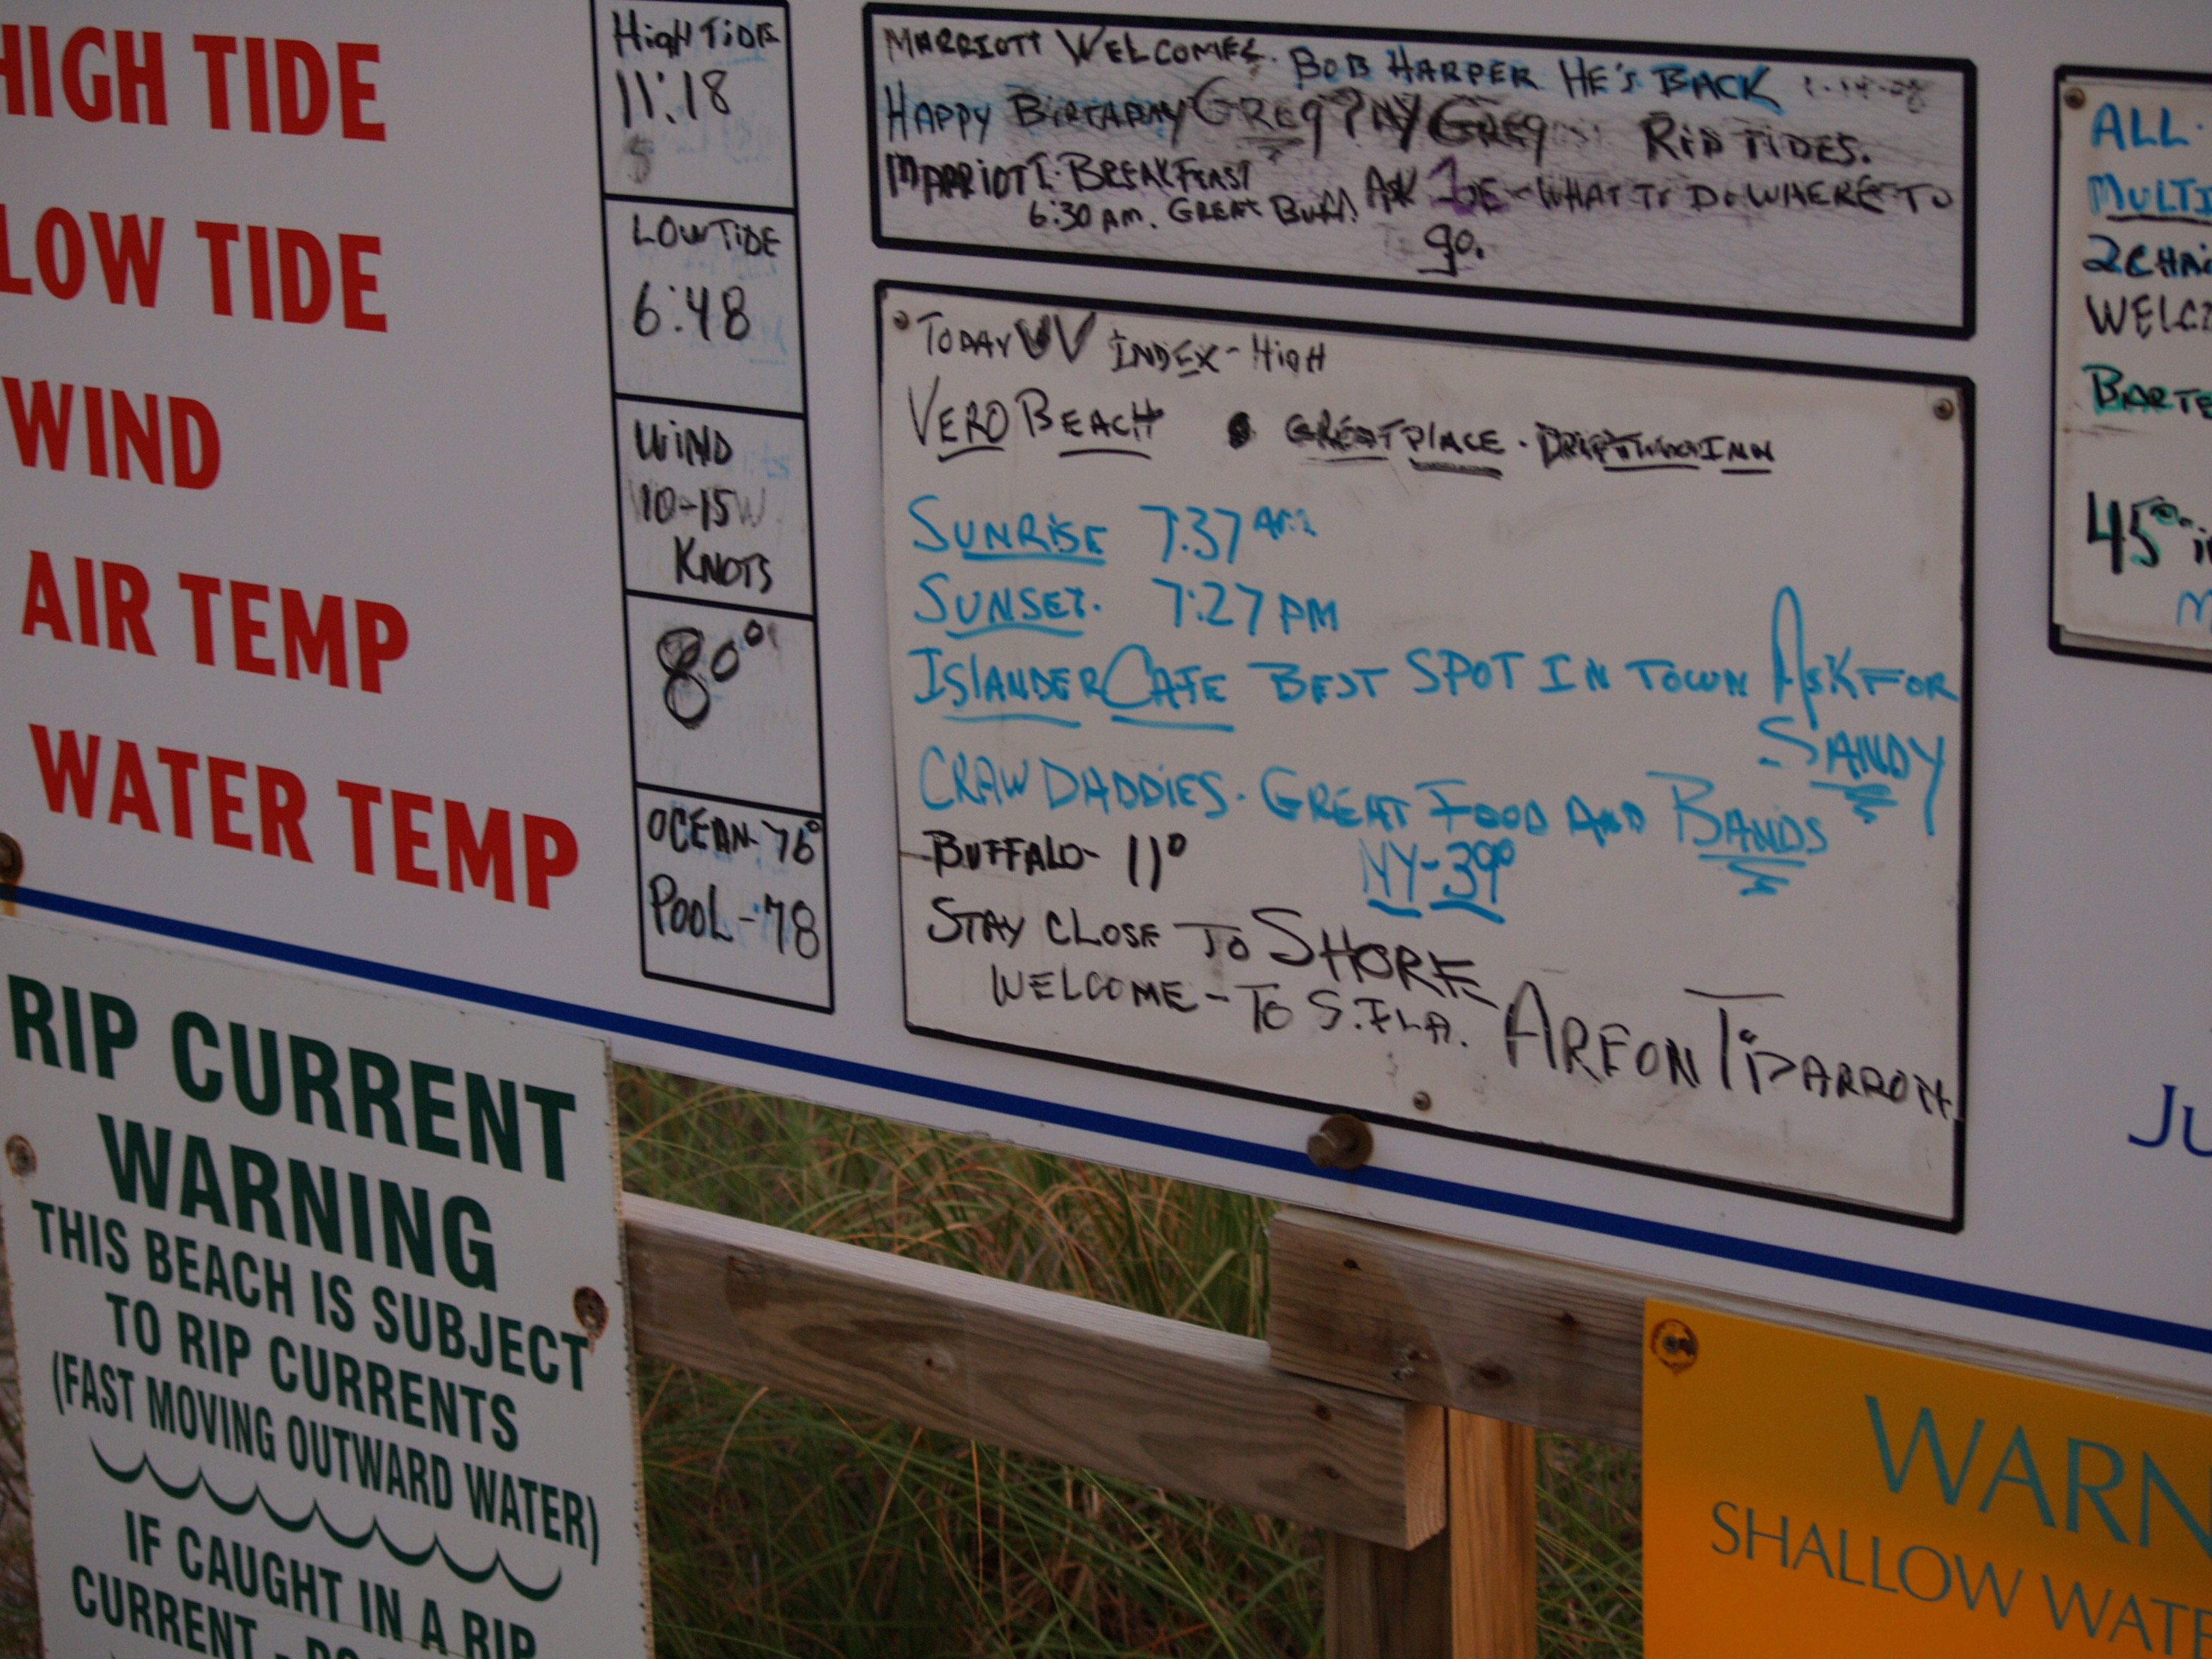 HIGH TIDE
LOW TIDE
WIND
AIR TEMP
WATER TEMP
HIGH TIDE
11:18
LOW TIDE
6:48
WIND
10-15 W
KNOTS
80°
OCEAN-76°
POOL-78
MARRIOTT WELCOMES. BOB HARPER HE'S BACK
HAPPY BIRTHDAY GREG? NY GREG RIP TIDES.
MARRIOTT. BREAKFAST ASK JOE - WHAT TO DO WHERE TO
6:30 AM. GREAT BUFF. go.
TODAY UV INDEX - HIGH
VERO BEACH GREAT PLACE. DRIFTWOOD INN
SUNRISE 7:37 AM
SUNSET. 7:27 PM
ISLANDER CAFE BEST SPOT IN TOWN ASK FOR
SANDY
CRAWDADDIES. GREAT FOOD AND BANDS
BUFFALO- 11° NY-39°
STAY CLOSE TO SHORE
WELCOME - TO S. FLA.
ALL
MULTI
2 CHAI
WELC
BARTE
45
JU
RIP CURRENT
WARNING
THIS BEACH IS SUBJECT
TO RIP CURRENTS
(FAST MOVING OUTWARD WATER)
IF CAUGHT IN A RIP
CURRENT - DO
WARN
SHALLOW WATE